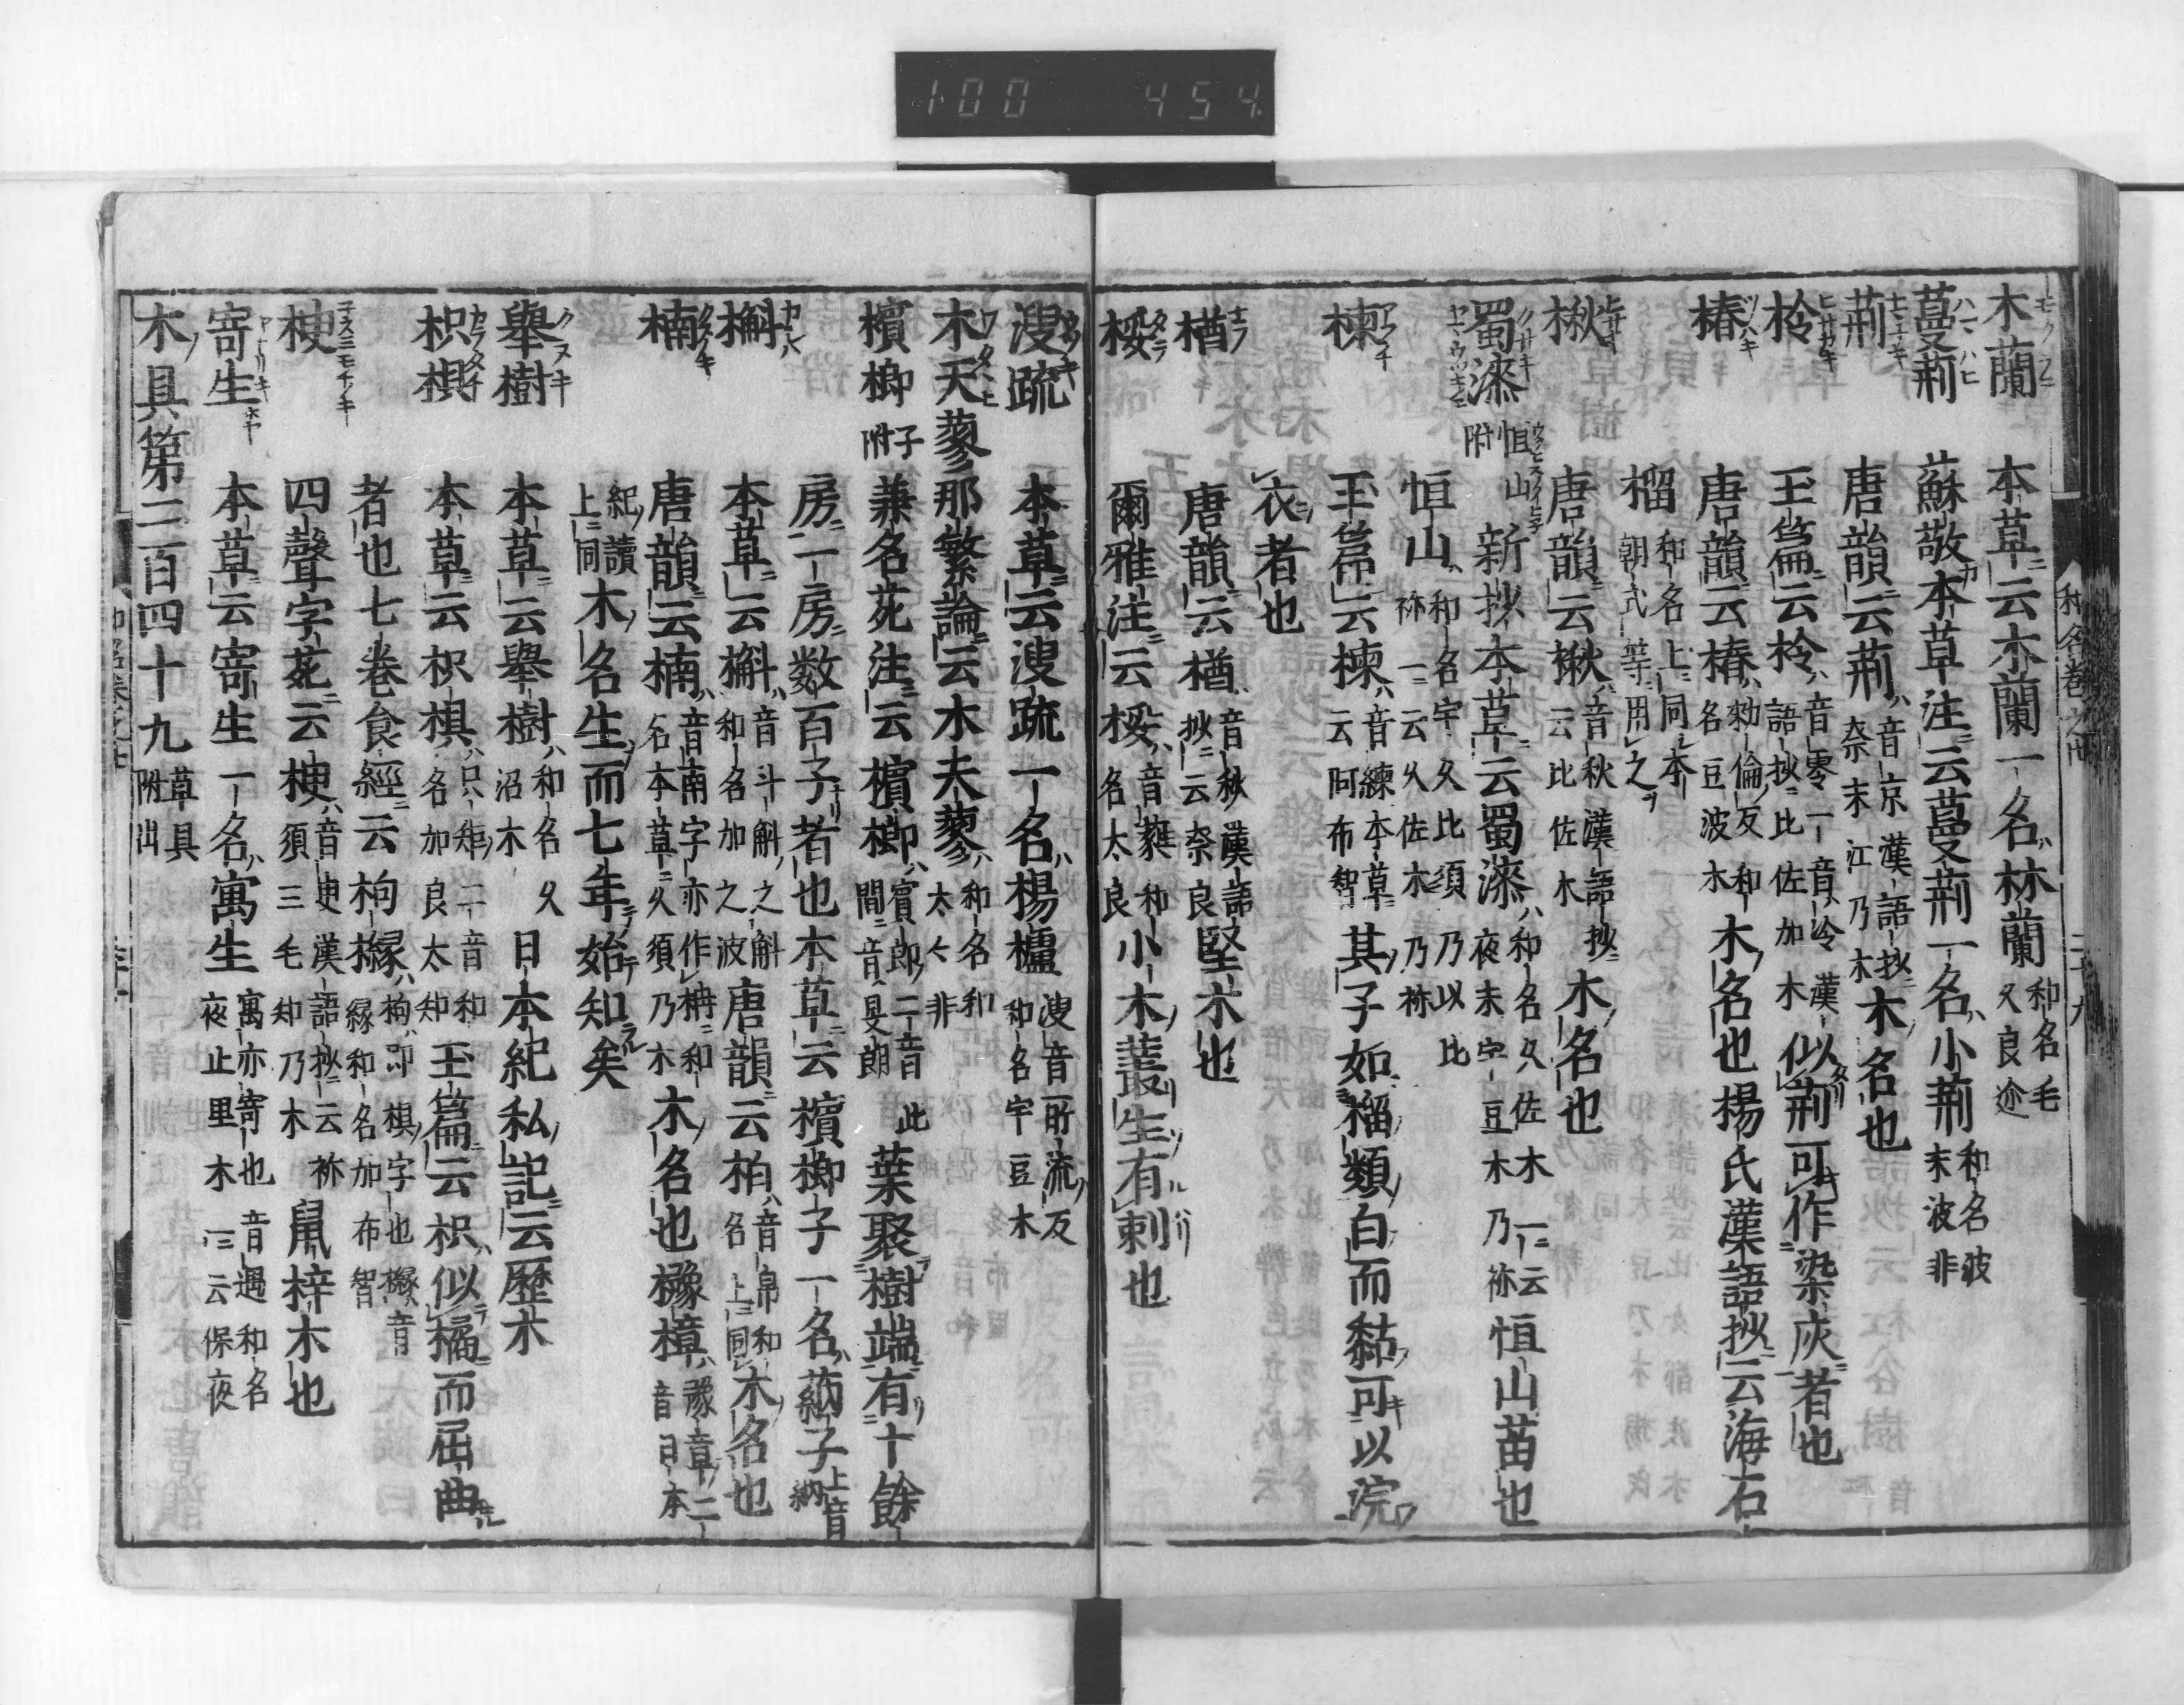 100 454
木蘭 本草云木蘭一名林蘭 和名毛久良迩
蔓荊 蘇敬本草注云蔓荊一名小荊 和名波末波非
荊 唐韻云荊 音京漢語抄奈末江乃木 木名也
柃 玉篇云柃 音零一音冷漢語抄比佐加木 似荊可作染灰者也
椿 唐韻云椿 勑倫反和名豆波木 木名也楊氏漢語抄云海石
榴 和名上同本朝式等用之
楸 唐韻云楸 音秋漢語抄云比佐木 木名也
蜀漆 恒山附 新抄本草云蜀漆 和名久佐木一云夜末宇豆木乃祢 恒山苗也
恒山 和名宇久比須乃以比祢一云久佐木乃祢
楝 玉篇云楝 音練本草云阿布智 其子如榴類白而黏可以浣
衣者也
楢 唐韻云楢 音秋漢語抄云奈良 堅木也
桵 爾雅注云桵 音蕤和名太良 小木叢生有刺也
溲疏 本草云溲疏一名楊櫨 溲音所流反和名宇豆木
木天蓼 那繁論云木天蓼 和名和太々非
檳榔 子附 兼名苑注云檳榔 賓郎二音此間音旻朗 葉聚樹端有十餘
房一房数百子者也本草云檳榔子一名蒳子 上音納
槲 本草云槲 音斗斛之斛和名加之波 唐韻云柏 音帛和名上同 木名也
楠 唐韻云楠 音南字亦作枏和名本草久須乃木 木名也櫲樟 豫章二音日本
紀讀上同 木名生而七年始知矣
舉樹 本草云舉樹 和名久沼木 日本紀私記云歷木
枳椇 本草云枳椇 只矩二音和名加良太知 玉篇云枳似橘而屈曲
者也七巻食經云枸櫞 枸即椇字也櫞音縁和名加布智
楰 四聲字苑云楰 音臾漢語抄云祢須三毛知乃木 鼠梓木也
寄生 本草云寄生一名寓生 寓亦寄也音遇和名夜止里木一云保夜
木具第二百四十九 草具附出